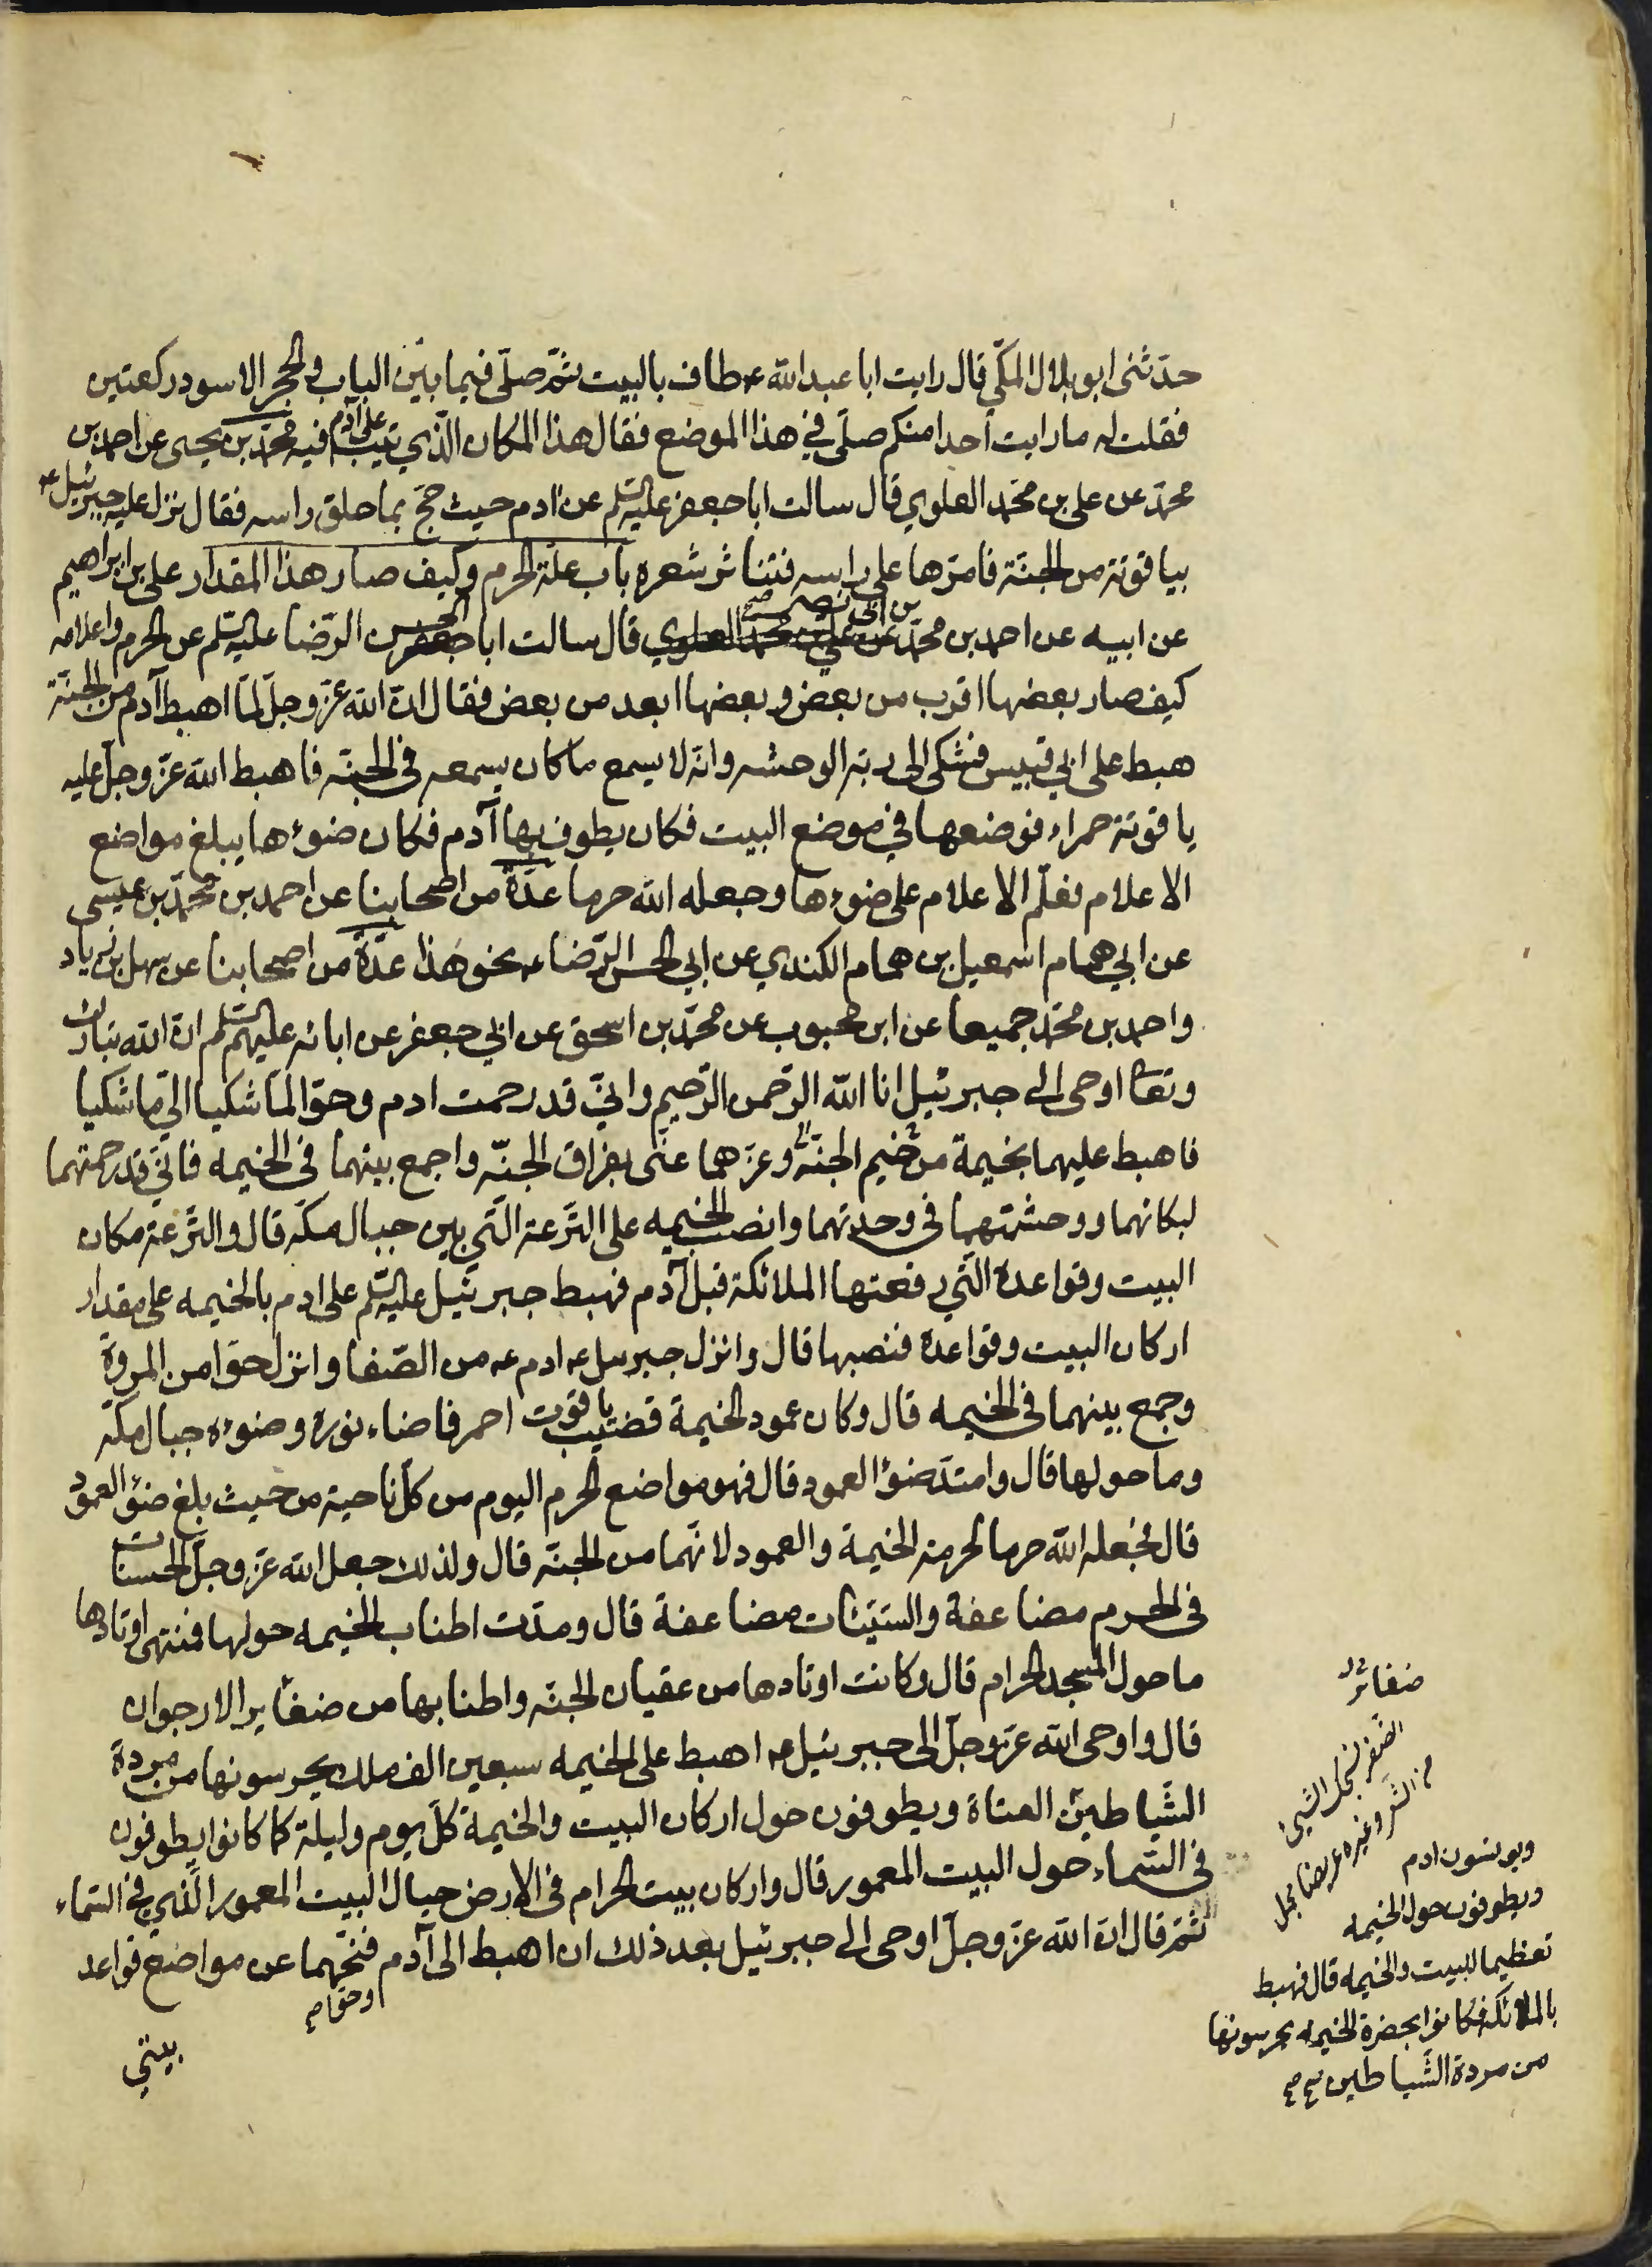 حدّثنى ابو بلال المكّي قال رايت ابا عبد الله ع طاف بالبيت ثمّ صلّى فيما بين الباب والحجر الاسود ركعتين
فقلت له ما رايت احدا منكم صلّى في هذا الموضع فقال هذا المكان الّذي تيب على آدم فيه محمّد بن يحيى عن احمد بن
محمّد عن على بن محمّد العلوي قال سالت ابا جعفر عليه السّلم عن ادم حيث حجّ بما حلق راسه فقال نزل عليه جبرئيل ع
بياقوتة من الجنّة فامرّها على راسه فتناثر شعره باب علّة الحرم وكيف صار هذا المقدار على بن ابراهيم
عن ابيه عن احمد بن محمّد بن ابى نصر صح عن على بن محمّد العلوي قال سالت ابا جعفر الحسن الرّضا عليه السّلم عن الحرم واعلامه
كيف صار بعضها اقرب من بعض وبعضها ابعد من بعض فقال انّ الله عزّ وجلّ لمّا اهبط آدم من الجنّة
هبط على ابي قبيس فشكى الى ربّه الوحشه وانّه لا يسمع ما كان يسمعه فى الجنّه فاهبط الله عزّ وجلّ عليه
ياقوتة حمراء فوضعها في موضع البيت فكان يطوف بها آدم فكان ضوءها يبلغ مواضع
الاعلام فعلّم الاعلام على ضوءها وجعله الله حرما عدّة من اصحابنا عن احمد بن محمّد بن عيسى
عن ابي همام اسمعيل بن همام الكندي عن ابي الحسن الرّضا ع نحو هذا عدّة من اصحابنا عن سهل بن زياد
واحمد بن محمّد جميعا عن ابن محبوب عن محمّد بن اسحق عن ابي جعفر عن ابائه عليهم السّلم انّ الله تبارك
وتعا اوحى الى جبرئيل انا الله الرّحمن الرّحيم وانّي قد رحمت ادم وحوّا لمّا شكيا الىّ ما شكيا
فاهبط عليهما بخيمة من خيم الجنّة وعزّهما عنّى بفراق الجنّه واجمع بينهما فى الخيمه فانّي قد رحمتهما
لبكائهما ووحشتهما فى وحدتهما وانصب الخيمه على التّرعة الّتي بين جبال مكّه قال والتّرعة مكان
البيت وقواعدة الّتي رفعتها الملائكة قبل آدم فهبط جبرئيل عليه السّلم على ادم بالخيمه على مقدار
اركان البيت وقواعدة فنصبها قال وانزل جبرئيل ع ادم ع من الصّفا وانزل حوّا من المروة
وجمع بينهما فى الخيمه قال وكان عمود الخيمة قضيب ياقوت احمر فاضاء نوره وضوءه جبال مكّه
وما حولها قال وامتدّ ضؤ العمود قال فهو مواضع الحرم اليوم من كلّ ناحية من حيث بلغ ضؤ العمود
قال فجعله الله حرما لحرمة الخيمة والعمود لانّهما من الجنّه قال ولذلك جعل الله عزّ وجلّ الحسنات
فى الحرم مضاعفة والسّيّئات مضاعفة قال ومدّت اطناب الخيمه حولها فمنتهى اوتادها
ما حول المسجد الحرام قال وكانت اوتادها من عقيان الجنّه واطنابها من ضفاير الارجوان
قال واوحى الله عزّ وجلّ الى جبرئيل ع اهبط على الخيمه سبعين الف ملك يحرسونها من مردة
الشّياطين العتاة ويطوفون حول اركان البيت والخيمة كلّ يوم وليلة كما كانوا يطوفون
فى السّماء حول البيت المعمور قال واركان بيت الحرام فى الارض حيال البيت المعمور الّذي في السّماء
ثمّ قال انّ الله عزّ وجلّ اوحى الى جبرئيل بعد ذلك ان اهبط الى آدم فنحّهما عن مواضع قواعد
وحوّا صح
بيتي
ضفائر
الضفر نسجك الشيئ
من الشعر وغيره عريضا
ويونسون ادم
ويطوفون حول الخيمه
تعظيما للبيت والخيمه قال فهبط
بالملائكة فكانوا بحضرة الخيمه يحرسونها
من مردة الشّياطين